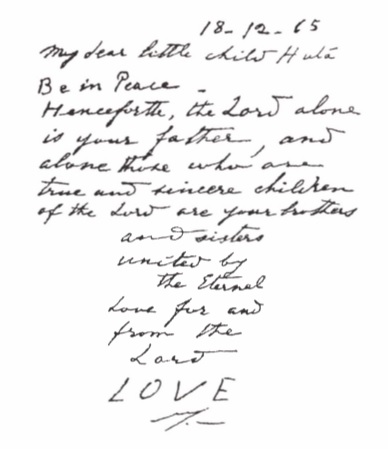 18-12-65
My dear little child Huta
Be in Peace -
Henceforth, the Lord alone
is your father, and
alone those who are
true and sincere children
of the Lord are your brothers
and sisters
united by
the Eternel
Love for and
from the
Lord
LOVE
M.-